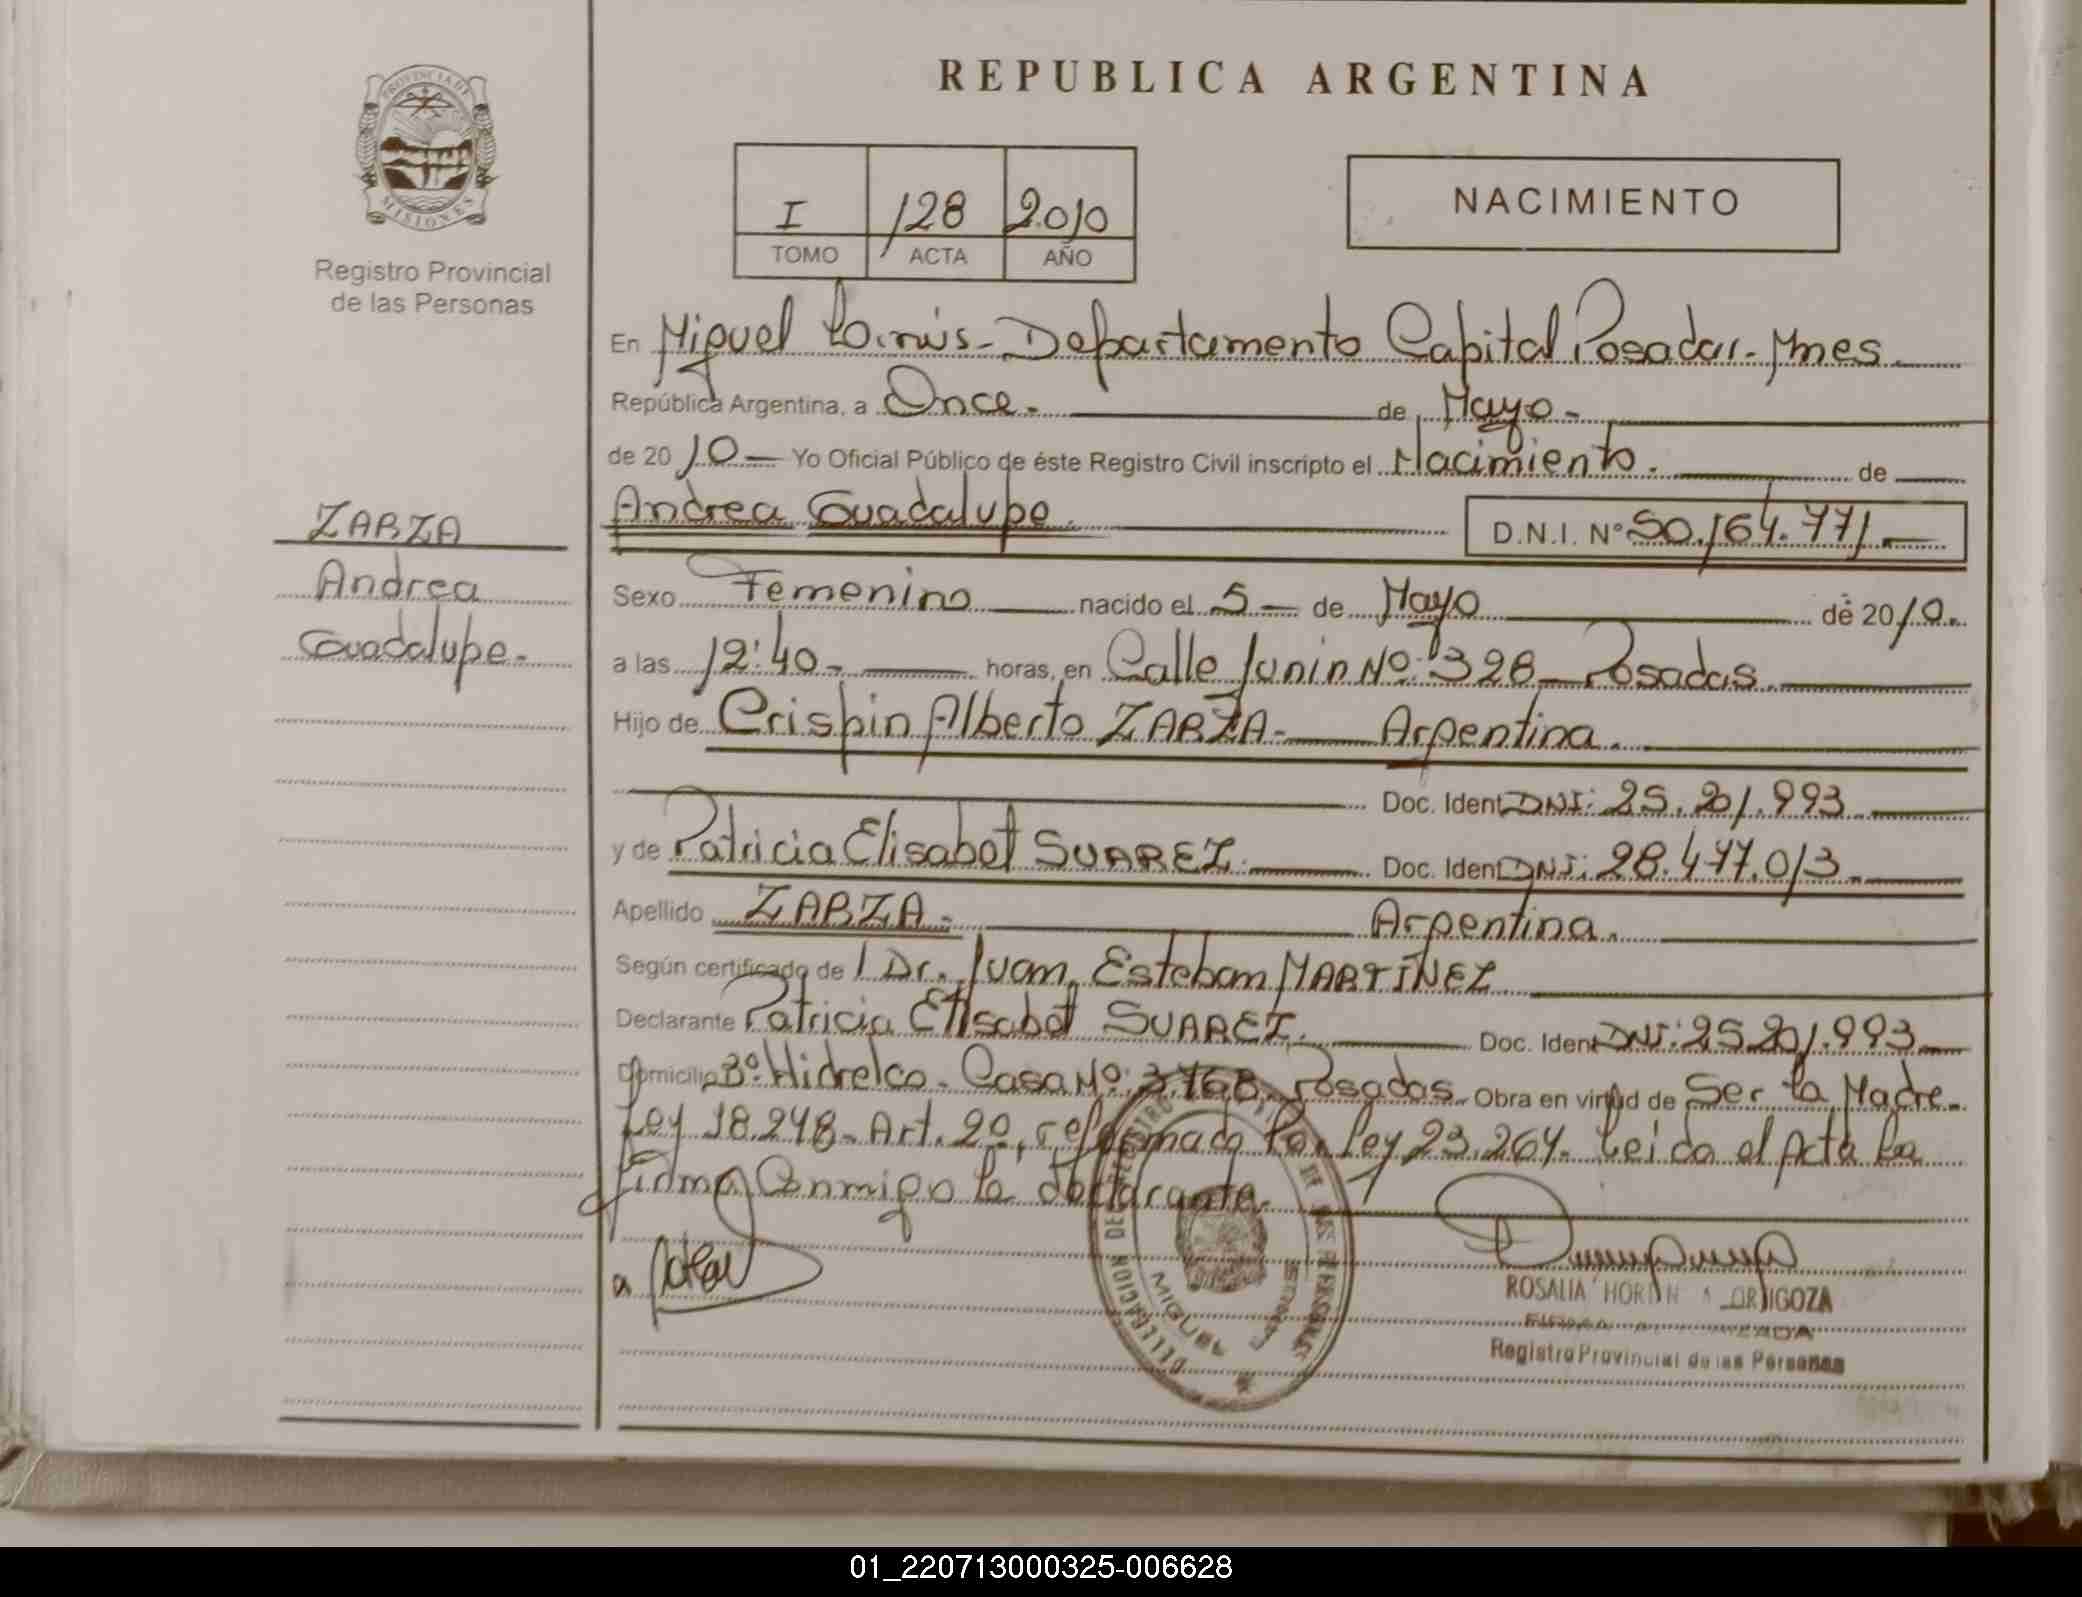 REPUBLICA ARGENTINA
PROVINCIA DE
MISIONES
Registro Provincial
de las Personas
I /28 2010
TOMO ACTA AÑO
NACIMIENTO
En Miguel Lanús - Departamento Capital Posadas - Mnes.
República Argentina, a Once. de Mayo.
de 2010 Yo Oficial Público de éste Registro Civil inscripto el Nacimiento. de
Andrea Guadalupe. D.N.I. Nº 50.164.771.
ZARZA
Andrea
Guadalupe.
Sexo Femenino nacido el 5 de Mayo de 2010.
a las 12:40 horas, en Calle Junin Nº: 328 Posadas.
Hijo de Crispin Alberto ZARZA - Argentina.
Doc. Ident DNI: 25.201.993
y de Patricia Elisabet SUAREZ. Doc. Ident DNI: 28.477.013
Apellido ZARZA. Argentina.
Según certificado de Dr. Juan Esteban MARTÍNEZ
Declarante Patricia Elisabet SUAREZ. Doc. Ident DNI: 25.201.993
Domicilio Bº. Hidrelco - Casa Nº: 3768 Posadas. Obra en virtud de Ser la Madre.
Ley 18.248 - Art. 2º, reformado Por Ley 23.264. Leida el Acta la
firma Conmigo la declarante.
DELEGACION DE REGISTRO DE LAS PERSONAS
MIGUEL
ROSALIA
Registro Provincial de las Personas
01_220713000325-006628